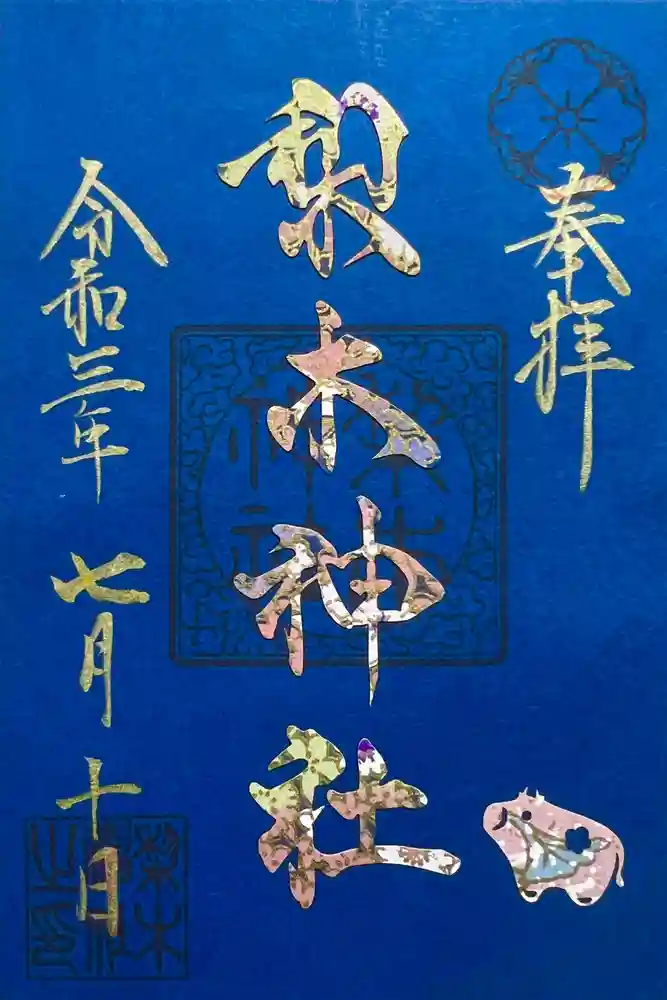 奉拝
梨木神社
令和三年 七月十日
梨木神社
梨木
之印